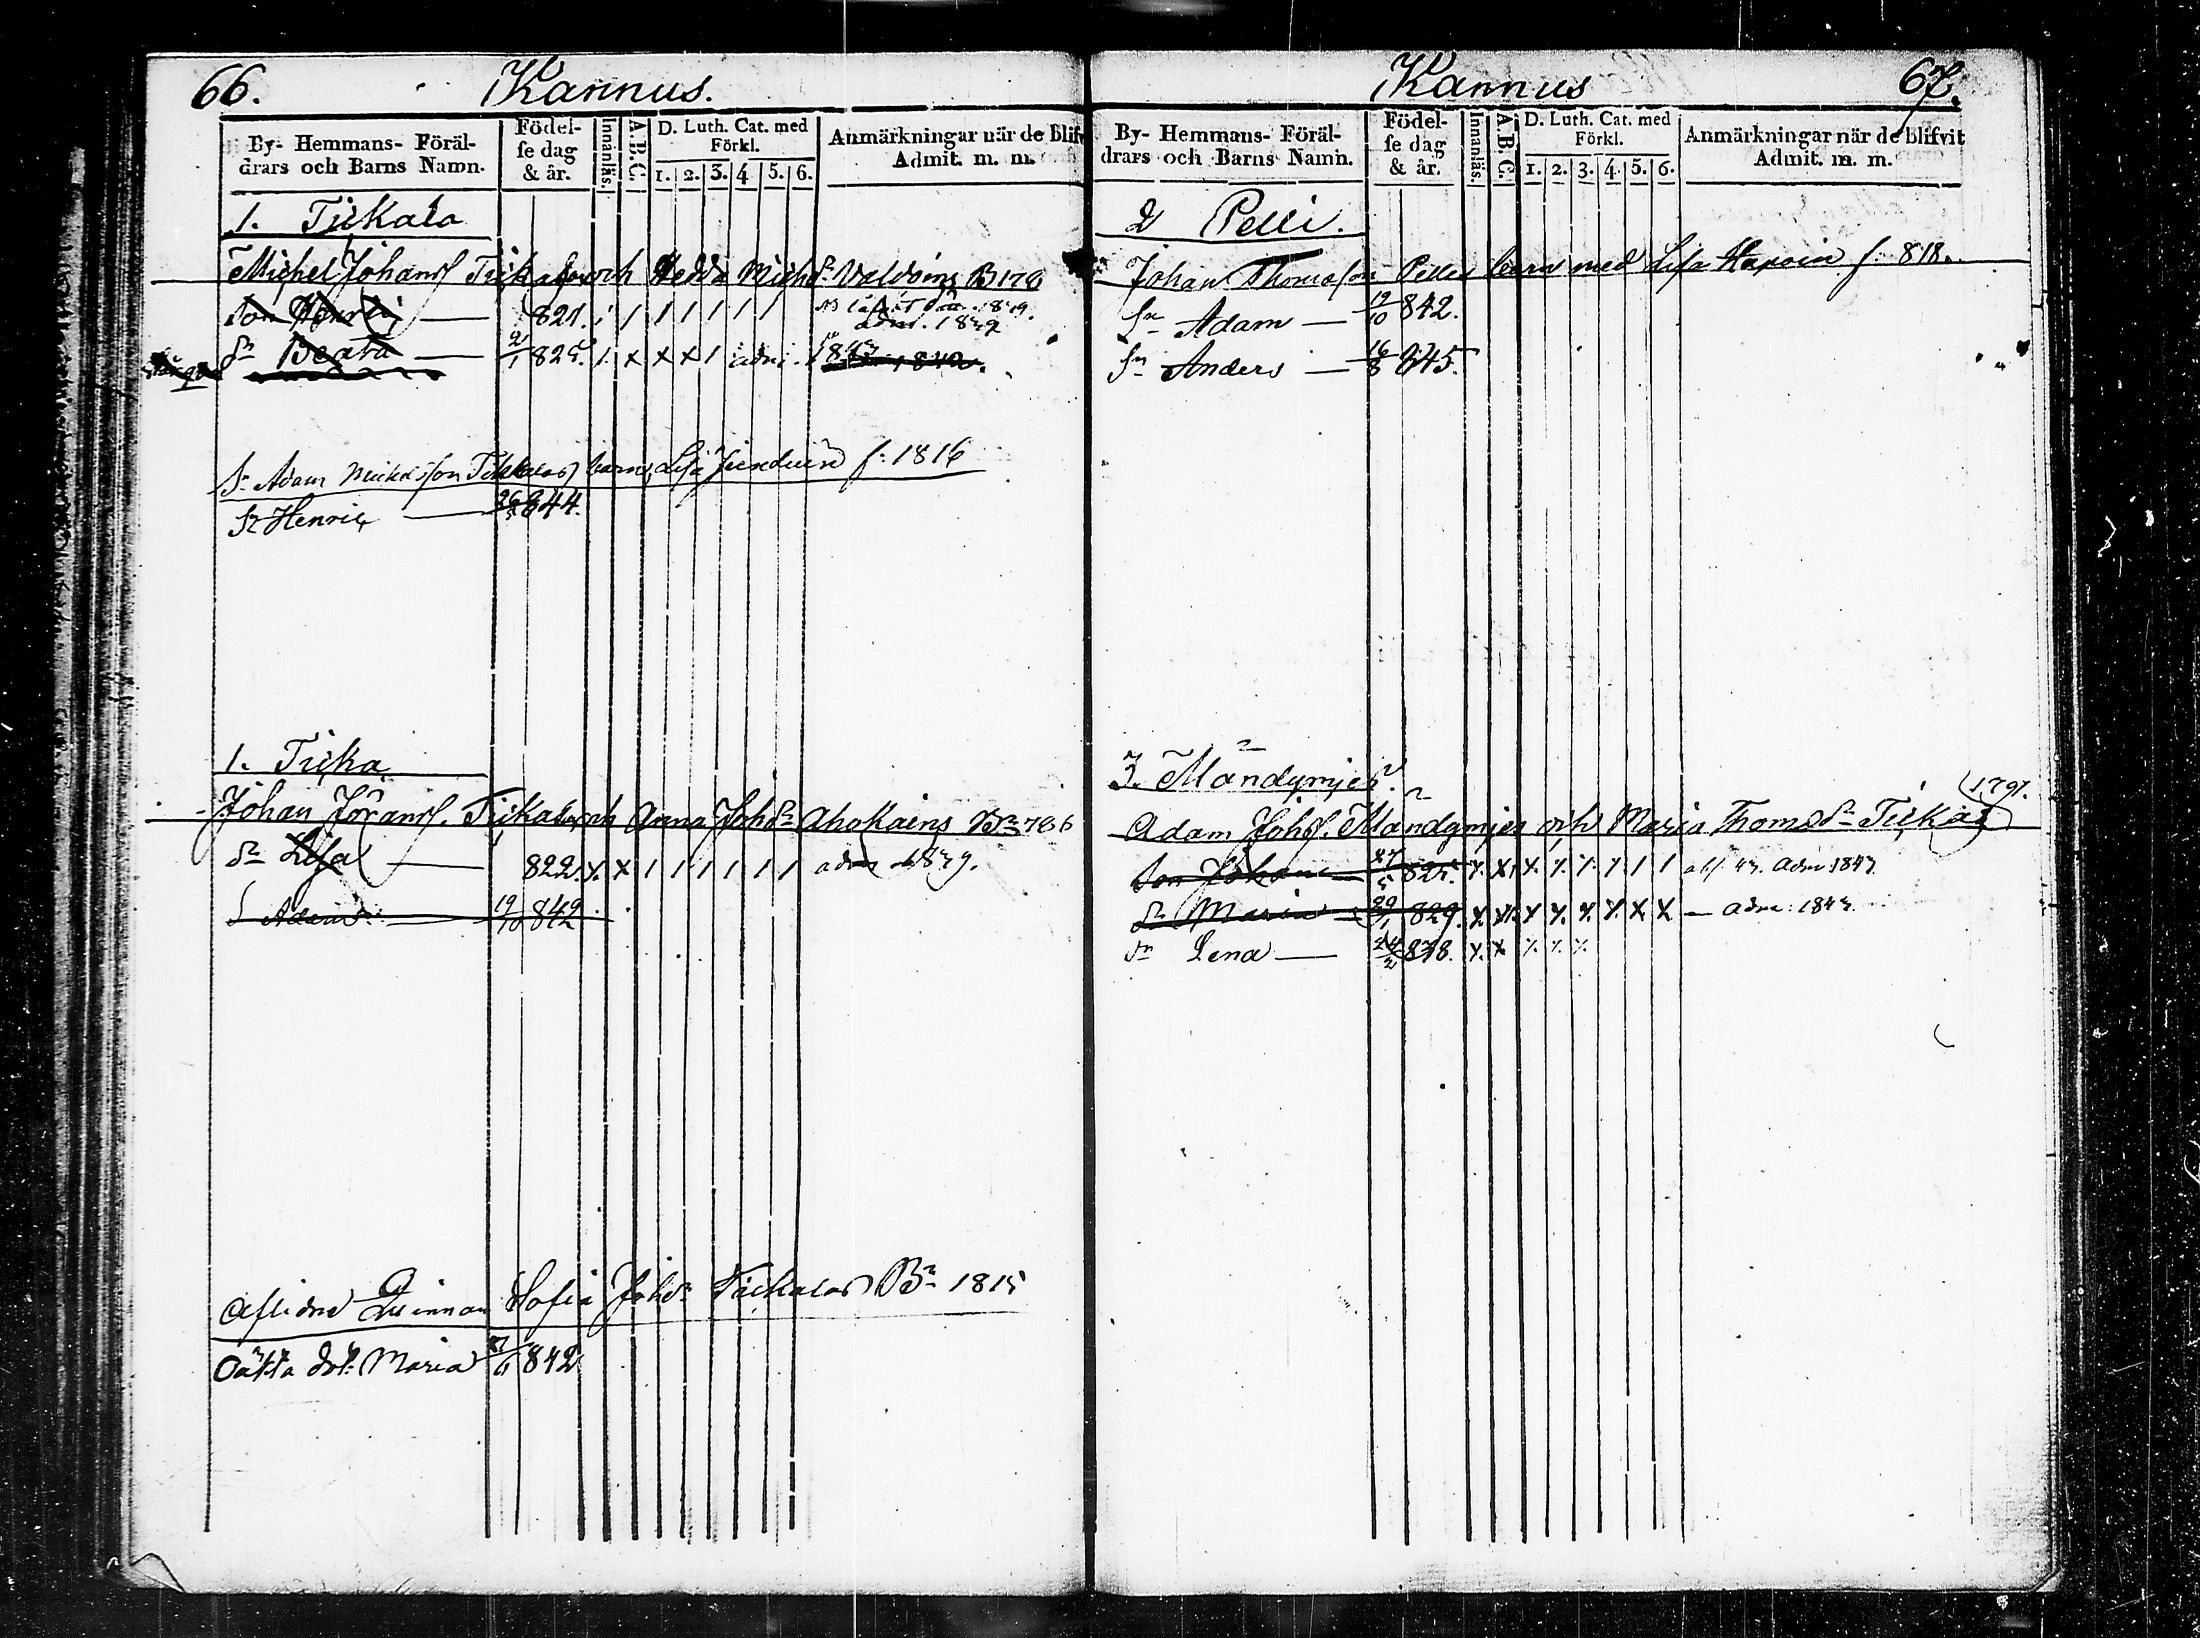 66. Kannus.
By- Hemmans- Föräl-
drars och Barns Namn.
Födel-
se dag
& år.
Innanläs.
A.B.C.
D. Luth. Cat. med
Förkl.
1. 2. 3. 4 5. 6.
Anmärkningar när de blifv
Admit. m. m.
1. Tickala
Michel Johanss Tickala och Hedda Michsdr Valvoins B 178
Son Henric — 821. 1 1 1 1 1 1 1 1839.
adm. 1839
Dr Beata — 2/1 825. 1. x x x 1 adm. 1843
Sn Adam Mickelsson Tickalas barn, Lisa f: 1816
Sn Henric — 26 844.
1. Ticka
Johan Jöranss. Tickala och Anna Johsdr Ahokains Br 786
Dr Lisa — 822. x. x 1 1 1 1 1 1 adm 1839.
S Adam — 19/10 842
Aflidne Qvinnan Sofia Johsdr Tickalas Br 1815
Oäkta dotr Maria 842
Kannus 67.
By- Hemmans- Föräl-
drars och Barns Namn.
Födel-
se dag
& år.
Innanläs.
A.B.C.
D. Luth. Cat. med
Förkl.
1. 2. 3. 4. 5. 6.
Anmärkningar när de blifvit
Admit. m. m.
2 Pelli.
Johan Thomasson Pelles barn med Lisa Hapoin f. 818.
Sn Adam — 19/10 842.
Sn Anders — 16/8 845.
3. Mandymjes.
1791.
Adam Johss. Mandymjes och Maria Thomsdr Tickas
Son Johan — 27/5 825. adm 1843
Dr Maria — 29/1 829. x x x x x x x x — adm: 1843.
Dr Lena — 24/2 838. x. x